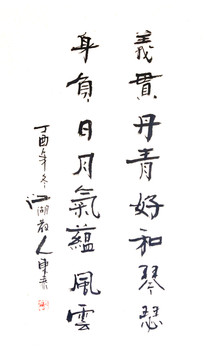 義貫丹青好和琴瑟
身負日月氣蘊風雲
丁酉年冬江湖散人東青